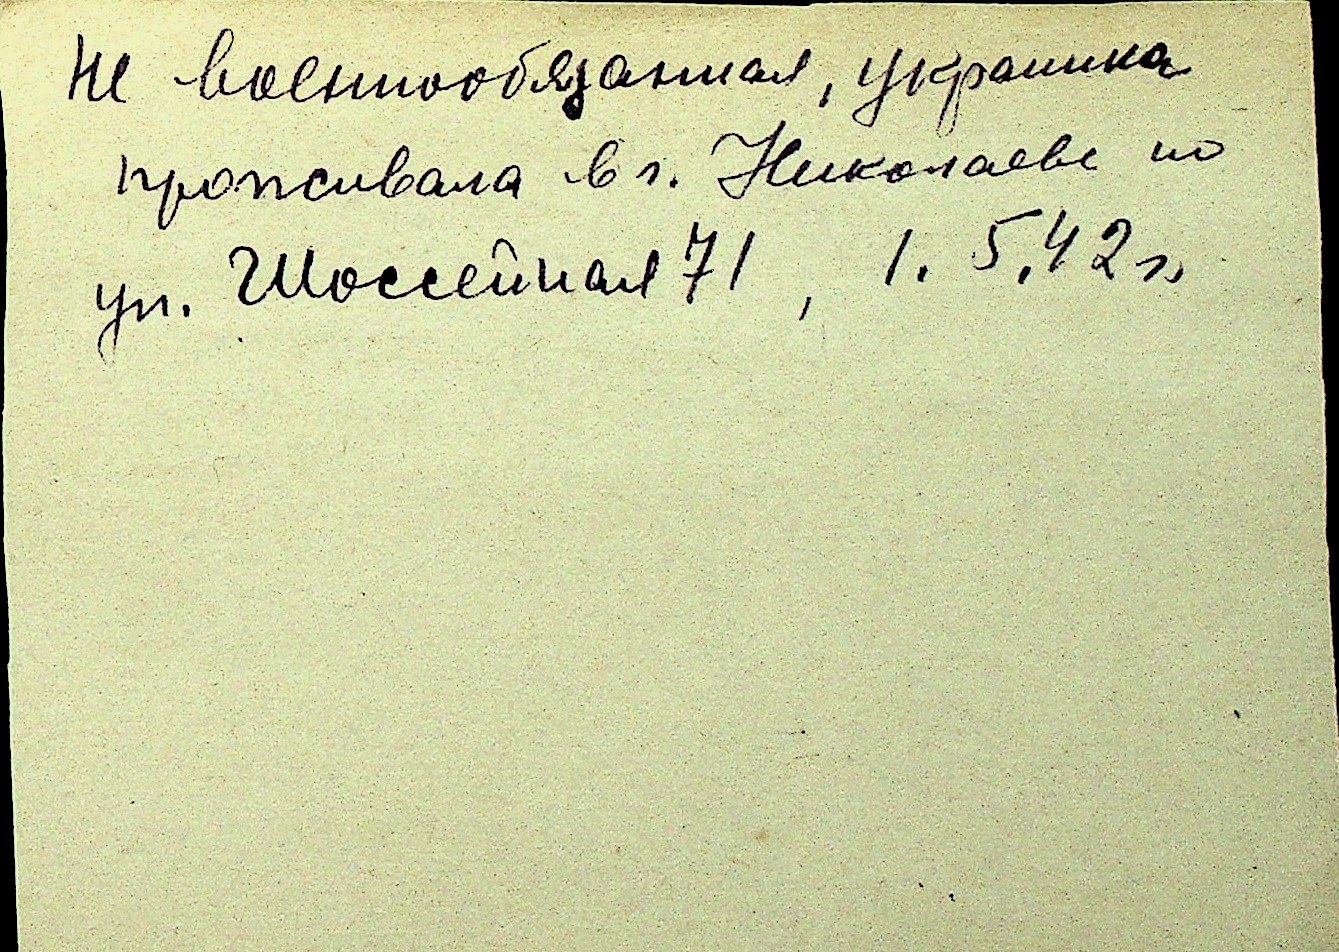 Не военнообязанная, украинка
проживала в г. Николаеве по
ул. Шоссейная 71, 1. 5.42 г.